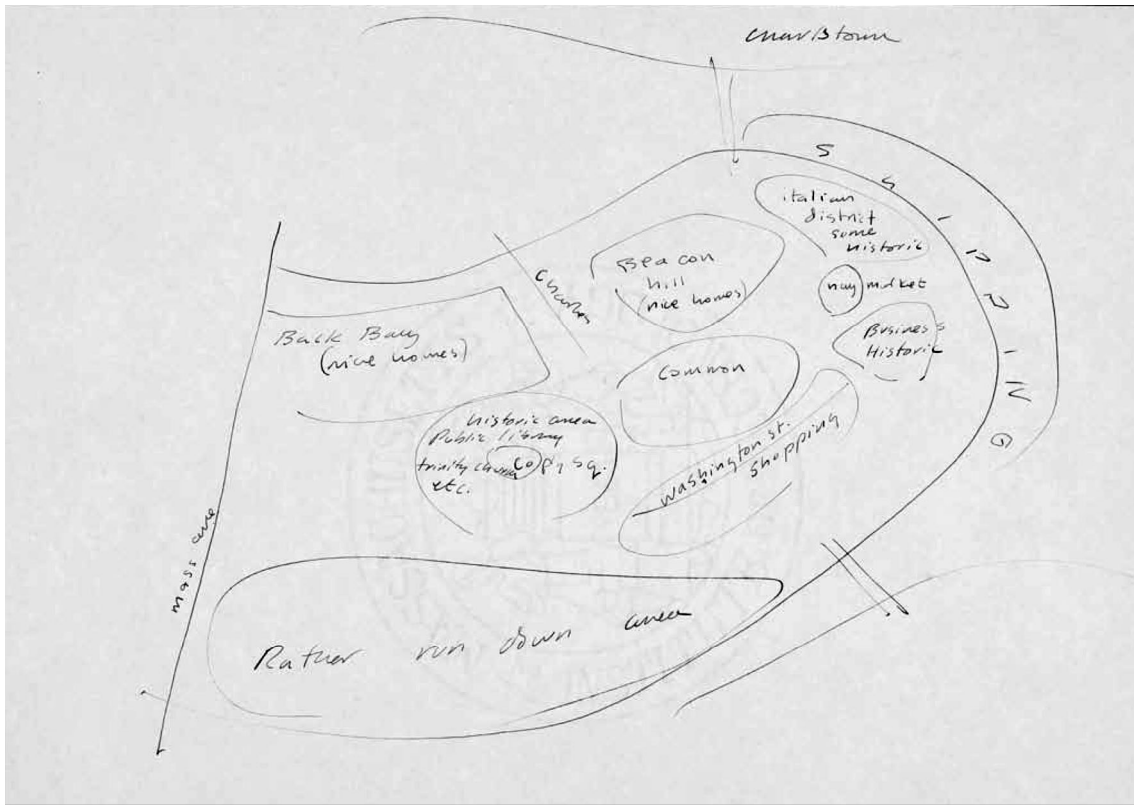 Charlstown
S
S
I
P
P
I
N
G
italian
district
some
historic
Beacon
hill
(nice homes)
Charles
hay market
Business
Historic
Back Bay
(nice homes)
Common
historic area
Public library
trinity church Coply sq.
etc.
washington st.
shopping
mass ave
Rather run down area